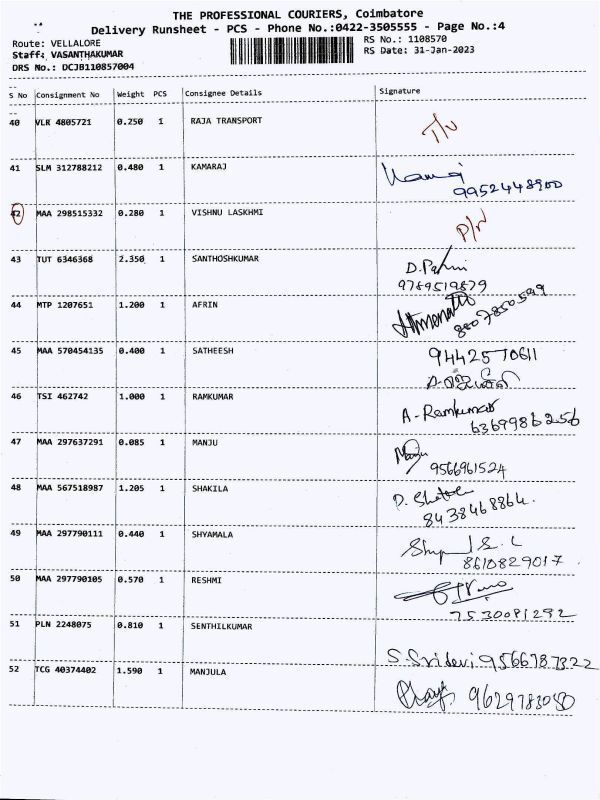 THE PROFESSIONAL COURIERS, Coimbatore
Delivery Runsheet - PCS - Phone No.:0422-3505555 - Page No.:4
Route: VELLALORE RS No.: 1108570
Staff: VASANTHAKUMAR RS Date: 31-Jan-2023
DRS No.: DCJB110857004
S No Consignment No Weight PCS Consignee Details Signature
40 VLR 4805721 0.250 1 RAJA TRANSPORT
41 SLM 312788212 0.480 1 KAMARAJ
9952448900
42 MAA 298515332 0.280 1 VISHNU LASKHMI
43 TUT 6346368 2.350 1 SANTHOSHKUMAR
9789519879
44 MTP 1207651 1.200 1 AFRIN
8807850599
45 MAA 570454135 0.400 1 SATHEESH 9442570611
46 TSI 462742 1.000 1 RAMKUMAR A-Ramkumar
6369986256
47 MAA 297637291 0.085 1 MANJU Manju
9566961524
48 MAA 567518987 1.205 1 SHAKILA
8438468864.
49 MAA 297790111 0.440 1 SHYAMALA
8610829017
50 MAA 297790105 0.570 1 RESHMI
7530081292
51 PLN 2248075 0.810 1 SENTHILKUMAR
S.Sridevi 9566787322
52 TCG 40374402 1.590 1 MANJULA
9629783050